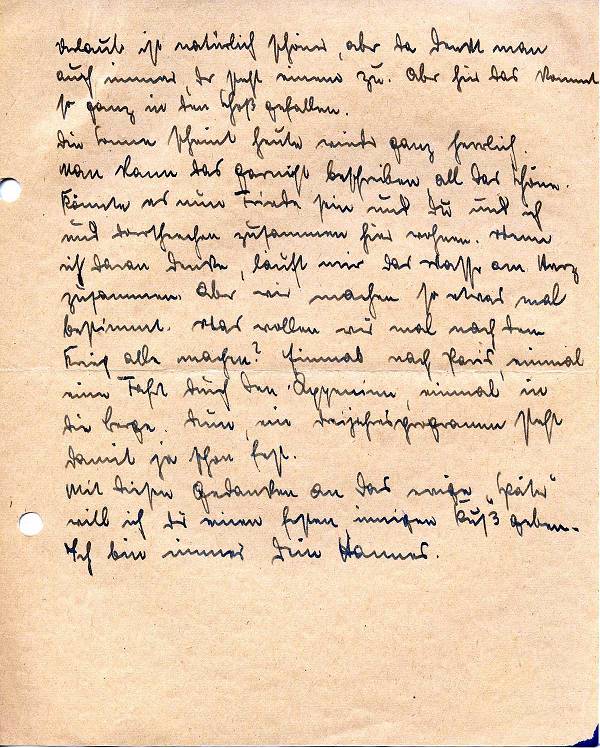 Urlaub ist natürlich schöner, aber da denkt man
auch immer, der steht einem zu. Aber hier das kommt
so ganz in den Schoß gefallen.
Die Sonne scheint heute wieder ganz herrlich.
Man kann das garnicht beschreiben all das Schöne.
Könnte es nun Friede sein und Du und ich
und zusammen hier wohnen. Wenn
ich daran denke, läuft mir das Wasser am Herz
zusammen. Aber wir machen so etwas mal
bestimmt. Was wollen wir mal nach dem
Krieg alle machen? Einmal nach Paris, einmal
eine Fahrt durch den Appenin, einmal in
die Berge. Nun, ein Dreijahresprogramm steht
damit ja schon fest.
Mit diesen Gedanken an das ewige „Später"
will ich Dir einen festen innigen Kuß geben.
Ich bin immer Dein Hannes.